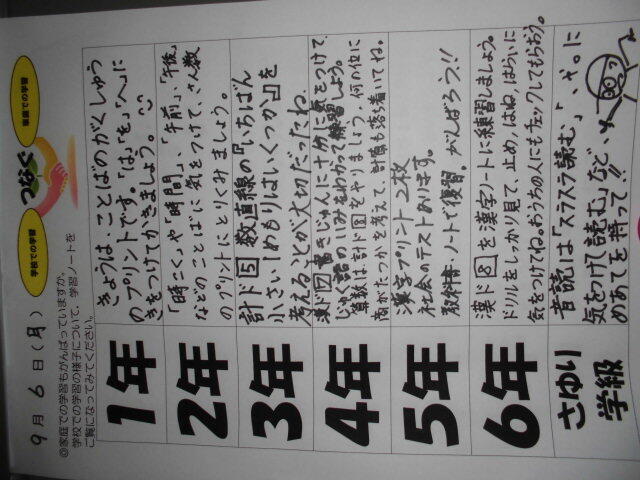 学校での学習
つなぐ
家庭での学習
9月6日(月)
◎家庭での学習もがんばっていますか。
学校での学習の様子について、学習ノートを
ご覧になってみてください。
1年
きょうは、ことばのがくしゅう
のプリントです。「は」「を」「へ」に
きをつけてかきましょう。
2年
「時こく」や「時間」、「午前」、「午後」
などのことばに気をつけて、さん数
のプリントにとりくみましょう。
3年
計ド5 数直線の「いちばん
小さい1めもりはいくつか」を
考えることが大切だったね
4年
漢ド7書きじゅんに十分に気をつけて、
じゅく語のいみをわかって練習しよう。
算数は、計ド図をやりましょう。何の位に
商がたつかを考えて、計算も落ち着いてね。
5年
漢字プリント2枚
社会のテストあります。
教科書・ノートで復習。がんばろう!!
6年
漢ド8を漢字ノートに練習しましょう。
ドリルをしっかり見て、止め、はね、はらいに
気をつけてね。おうちの人にもチェックしてもらおう。
さゆり
学級
音読は「スラスラ読む」、「、や。に
気をつけて読む」など、
めあてを持って!!